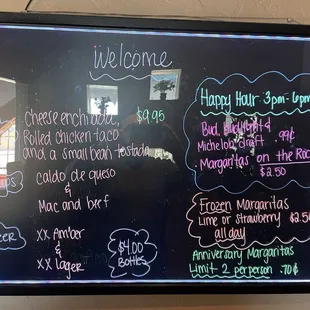 Welcome
Cheese enchilada, $9.95
Rolled chicken taco
and a small bean tostada
caldo de queso
&
Mac and beef
XX Amber
&
XX Lager
$4.00
Bottles
Happy Hour 3pm-6pm
Bud, Budlight &
Michelob draft 99¢
Margaritas on the Rocks
$2.50
Frozen Margaritas
Lime or strawberry $2.50
all day
Anniversary Margaritas
Limit 2 per person .70¢